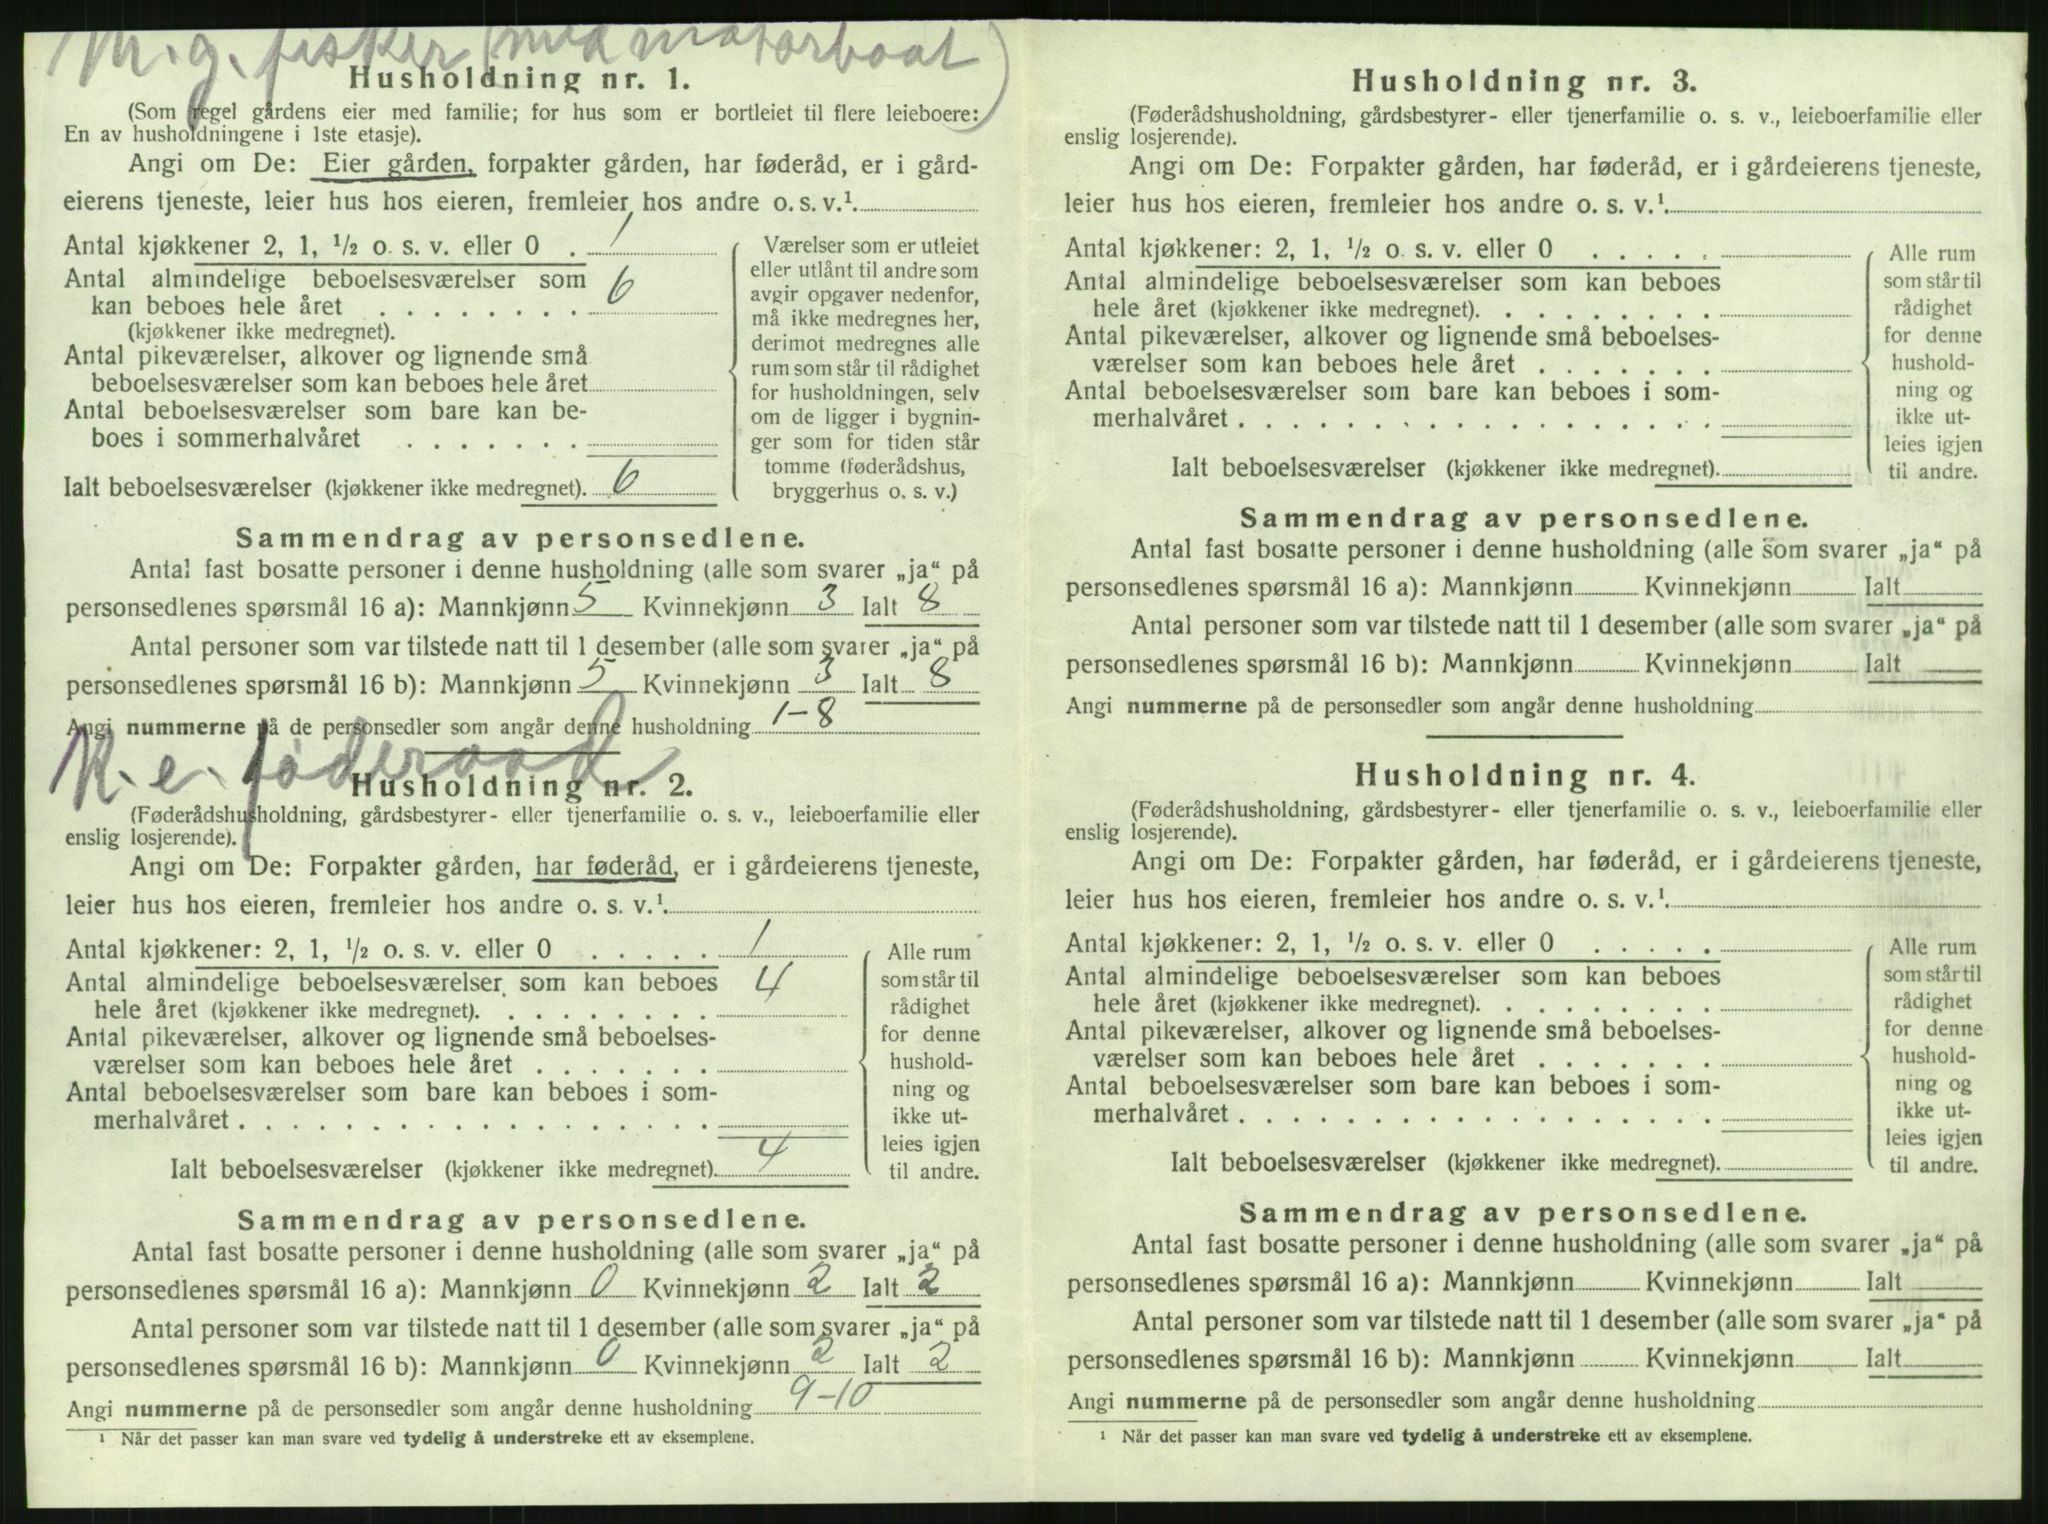 M. g. fisker (med motorbaat)
Husholdning nr. 1.
(Som regel gårdens eier med familie; for hus som er bortleiet til flere leieboere:
En av husholdningene i 1ste etasje).
Angi om De: Eier gården, forpakter gården, har føderåd, er i gård-
eierens tjeneste, leier hus hos eieren, fremleier hos andre o. s. v.¹.
Antal kjøkkener 2, 1, ½ o. s. v. eller 0 . 1
Antal almindelige beboelsesværelser som
kan beboes hele året . . . . . . . . 6
(kjøkkener ikke medregnet).
Antal pikeværelser, alkover og lignende små
beboelsesværelser som kan beboes hele året
Antal beboelsesværelser som bare kan be-
boes i sommerhalvåret . . . . . . .
Ialt beboelsesværelser (kjøkkener ikke medregnet). 6
Værelser som er utleiet
eller utlånt til andre som
avgir opgaver nedenfor,
må ikke medregnes her,
derimot medregnes alle
rum som står til rådighet
for husholdningen, selv
om de ligger i bygnin-
ger som for tiden står
tomme (føderådshus,
bryggerhus o. s. v.)
Sammendrag av personsedlene.
Antal fast bosatte personer i denne husholdning (alle som svarer „ja“ på
personsedlenes spørsmål 16 a): Mannkjønn 5 Kvinnekjønn 3 Ialt 8
Antal personer som var tilstede natt til 1 desember (alle som svarer „ja“ på
personsedlenes spørsmål 16 b): Mannkjønn 5 Kvinnekjønn 3 Ialt 8
Angi nummerne på de personsedler som angår denne husholdning 1-8
K. e. føderaad
Husholdning nr. 2.
(Føderådshusholdning, gårdsbestyrer- eller tjenerfamilie o. s. v., leieboerfamilie eller
enslig losjerende).
Angi om De: Forpakter gården, har føderåd, er i gårdeierens tjeneste,
leier hus hos eieren, fremleier hos andre o. s. v.¹.
Antal kjøkkener: 2, 1, ½ o. s. v. eller 0 . . . . . 1
Antal almindelige beboelsesværelser som kan beboes
hele året (kjøkkener ikke medregnet). . . . . . . . . 4
Antal pikeværelser, alkover og lignende små beboelses-
værelser som kan beboes hele året . . . . . . .
Antal beboelsesværelser som bare kan beboes i som-
merhalvåret . . . . . . . . . . . . . . . . . .
Ialt beboelsesværelser (kjøkkener ikke medregnet). 4
Alle rum
som står til
rådighet
for denne
hushold-
ning og
ikke ut-
leies igjen
til andre.
Sammendrag av personsedlene.
Antal fast bosatte personer i denne husholdning (alle som svarer „ja“ på
personsedlenes spørsmål 16 a): Mannkjønn 0 Kvinnekjønn 2 Ialt 2
Antal personer som var tilstede natt til 1 desember (alle som svarer „ja“ på
personsedlenes spørsmål 16 b): Mannkjønn 0 Kvinnekjønn 2 Ialt 2
Angi nummerne på de personsedler som angår denne husholdning 9-10
¹ Når det passer kan man svare ved tydelig å understreke ett av eksemplene.
Husholdning nr. 3.
(Føderådshusholdning, gårdsbestyrer- eller tjenerfamilie o. s. v., leieboerfamilie eller
enslig losjerende).
Angi om De: Forpakter gården, har føderåd, er i gårdeierens tjeneste,
leier hus hos eieren, fremleier hos andre o. s. v.¹.
Antal kjøkkener: 2, 1, ½ o. s. v. eller 0 . . . . .
Antal almindelige beboelsesværelser som kan beboes
hele året (kjøkkener ikke medregnet). . . . . . . . .
Antal pikeværelser, alkover og lignende små beboelses-
værelser som kan beboes hele året . . . . . . .
Antal beboelsesværelser som bare kan beboes i som-
merhalvåret . . . . . . . . . . . . . . . . . .
Ialt beboelsesværelser (kjøkkener ikke medregnet).
Alle rum
som står til
rådighet
for denne
hushold-
ning og
ikke ut-
leies igjen
til andre.
Sammendrag av personsedlene.
Antal fast bosatte personer i denne husholdning (alle som svarer „ja“ på
personsedlenes spørsmål 16 a): Mannkjønn Kvinnekjønn Ialt
Antal personer som var tilstede natt til 1 desember (alle som svarer „ja“ på
personsedlenes spørsmål 16 b): Mannkjønn Kvinnekjønn Ialt
Angi nummerne på de personsedler som angår denne husholdning
Husholdning nr. 4.
(Føderådshusholdning, gårdsbestyrer- eller tjenerfamilie o. s. v., leieboerfamilie eller
enslig losjerende).
Angi om De: Forpakter gården, har føderåd, er i gårdeierens tjeneste,
leier hus hos eieren, fremleier hos andre o. s. v.¹.
Antal kjøkkener: 2, 1, ½ o. s. v. eller 0 . . . . .
Antal almindelige beboelsesværelser som kan beboes
hele året (kjøkkener ikke medregnet). . . . . . . . .
Antal pikeværelser, alkover og lignende små beboelses-
værelser som kan beboes hele året . . . . . . .
Antal beboelsesværelser som bare kan beboes i som-
merhalvåret . . . . . . . . . . . . . . . . . .
Ialt beboelsesværelser (kjøkkener ikke medregnet).
Alle rum
som står til
rådighet
for denne
hushold-
ning og
ikke ut-
leies igjen
til andre.
Sammendrag av personsedlene.
Antal fast bosatte personer i denne husholdning (alle som svarer „ja“ på
personsedlenes spørsmål 16 a): Mannkjønn Kvinnekjønn Ialt
Antal personer som var tilstede natt til 1 desember (alle som svarer „ja“ på
personsedlenes spørsmål 16 b): Mannkjønn Kvinnekjønn Ialt
Angi nummerne på de personsedler som angår denne husholdning
¹ Når det passer kan man svare ved tydelig å understreke ett av eksemplene.